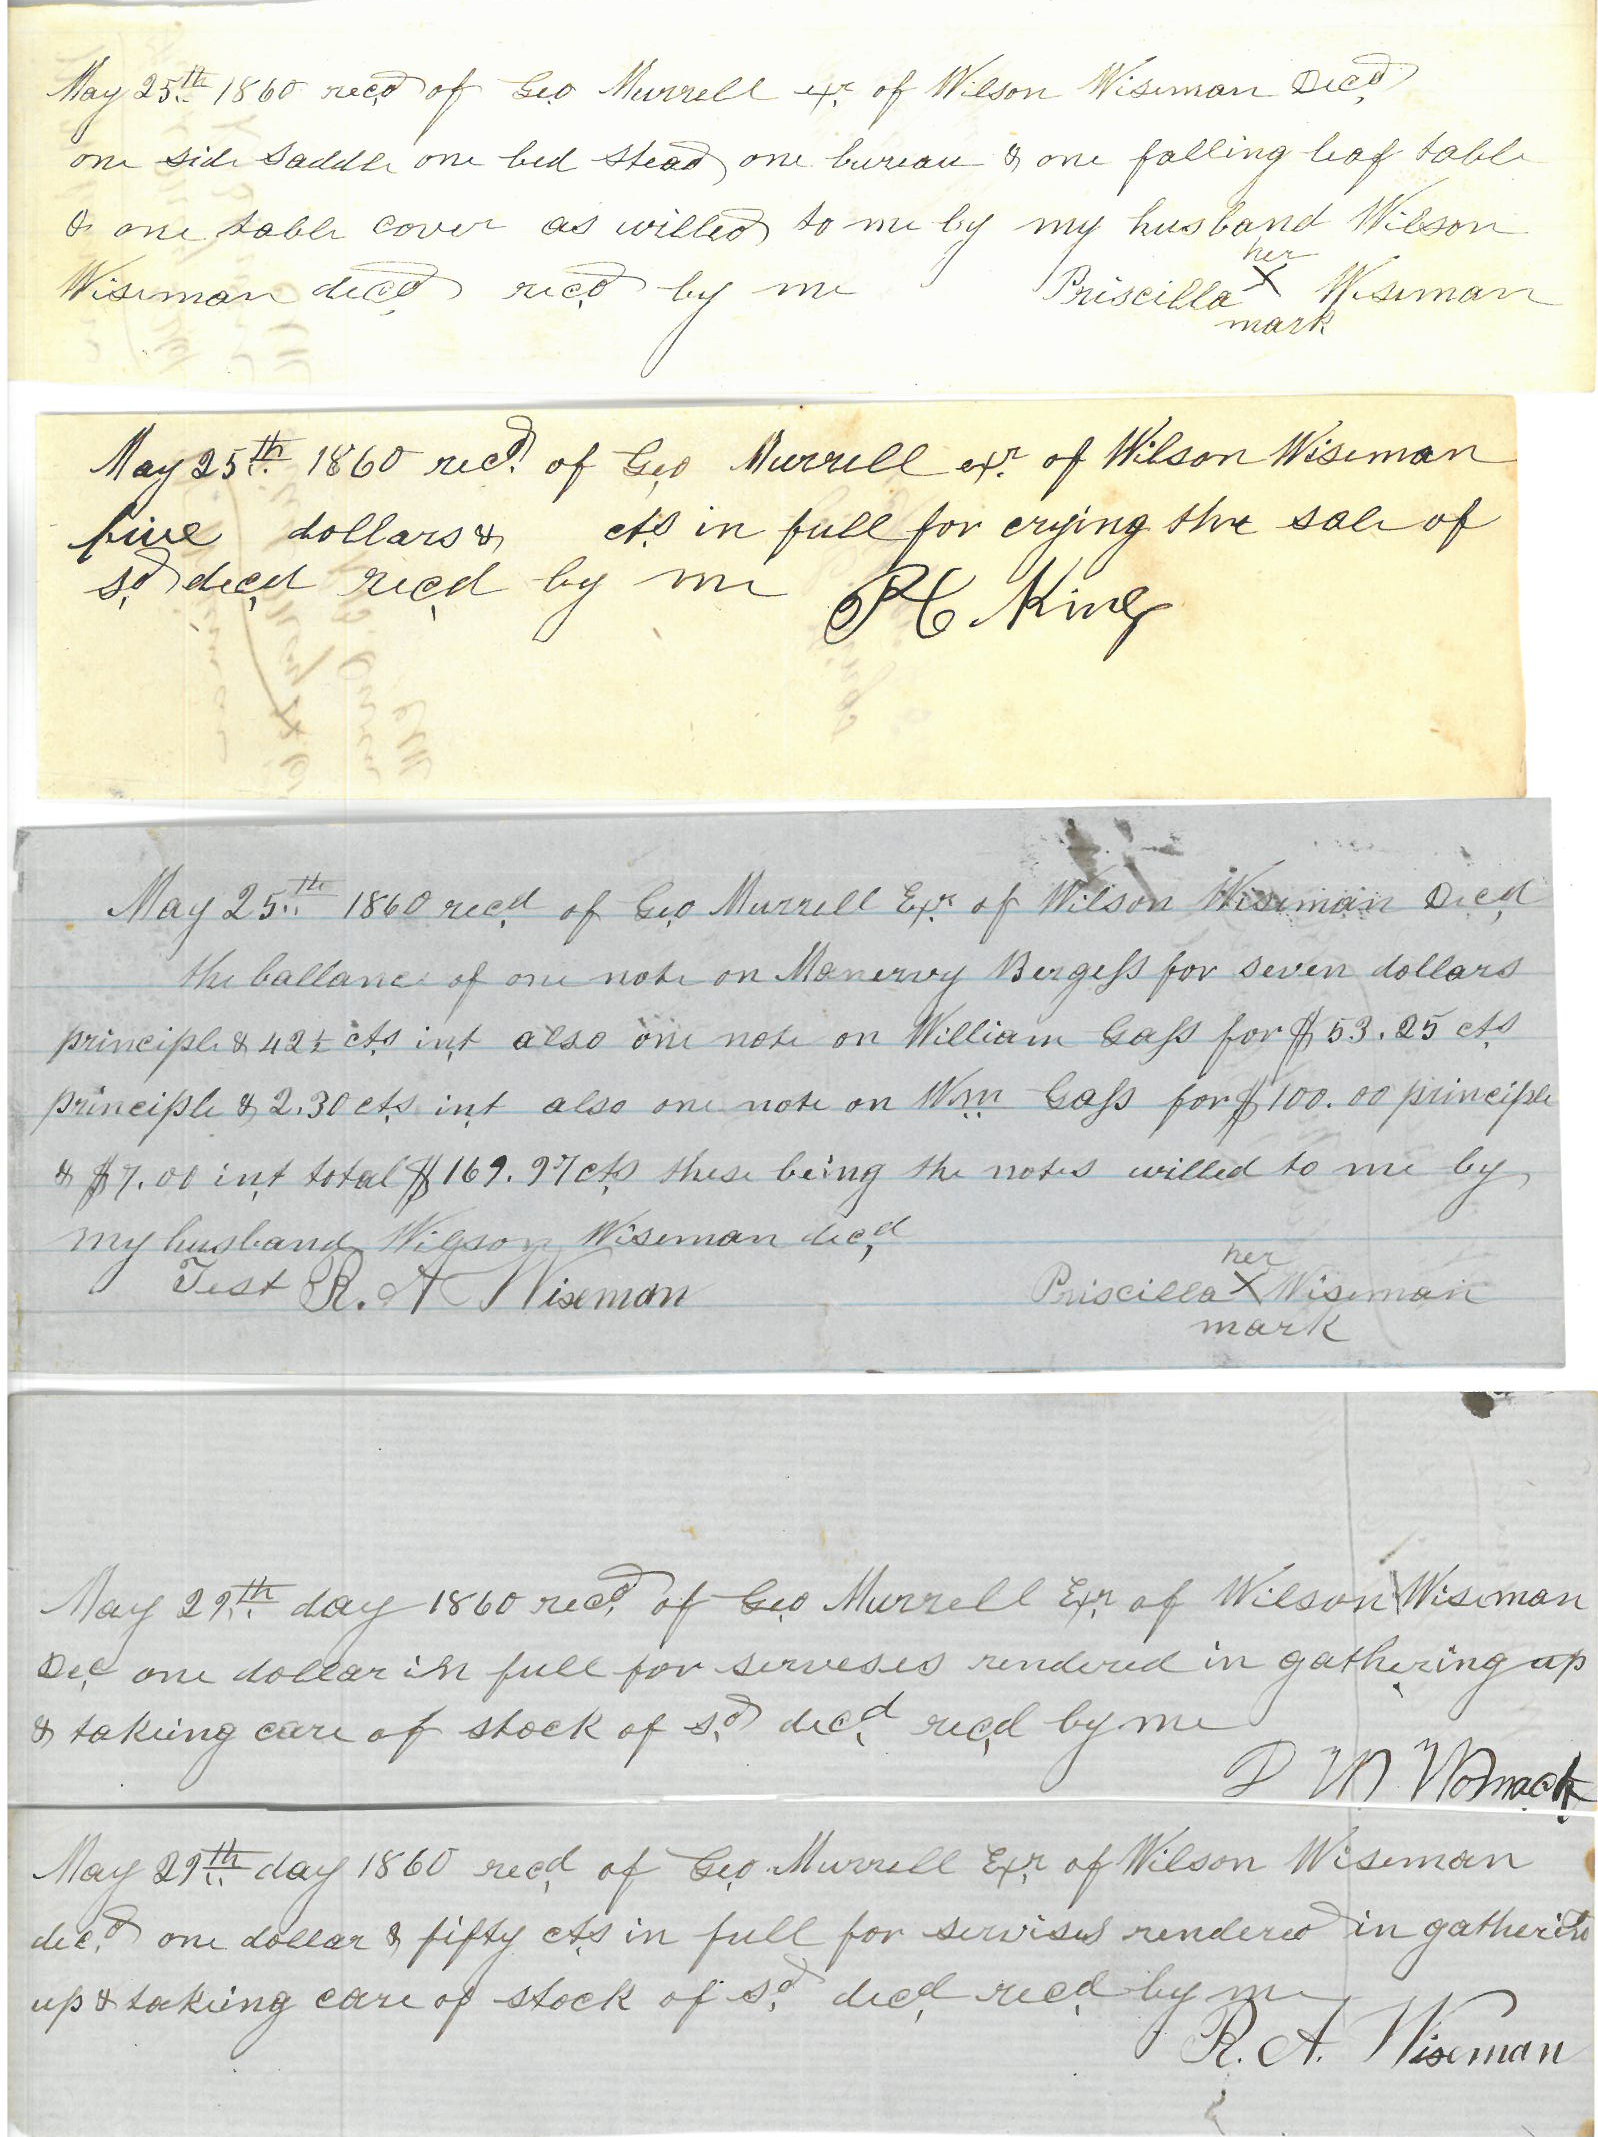 May 25th 1860 recd of Geo Murrell exr of Wilson Wiseman Decd
one side saddle one bed stead one bureau & one falling leaf table
& one table cover as willed to me by my husband Wilson
Wiseman decd recd by me Priscilla her X mark Wiseman
May 25th 1860 recd of Geo Murrell exr of Wilson Wiseman
five dollars & cts in full for crying the sale of
sd decd recd by me P C King
May 25th 1860 recd of Geo Murrell Exr of Wilson Wiseman Decd
the ballance of one note on Manervy Bergess for seven dollars
principle & 42½ cts int also one note on William Gass for $53.25 cts
principle & 2.30 cts int also one note on Wm Gass for $100.00 principle
& $7.00 int total $169.97 cts these being the notes willed to me by
my husband Wilson Wiseman decd
Test R. A Wiseman Priscilla her X mark Wiseman
May 29th day 1860 recd of Geo Murrell Exr of Wilson Wiseman
Dec one dollar in full for serveses rendered in gathering up
& takeing care of stock of sd decd recd by me
D W Womack
May 29th day 1860 recd of Geo Murrell Exr of Wilson Wiseman
decd one dollar & fifty cts in full for servises rendered in gathering
up & takeing care of stock of sd decd recd by me
R. A. Wiseman